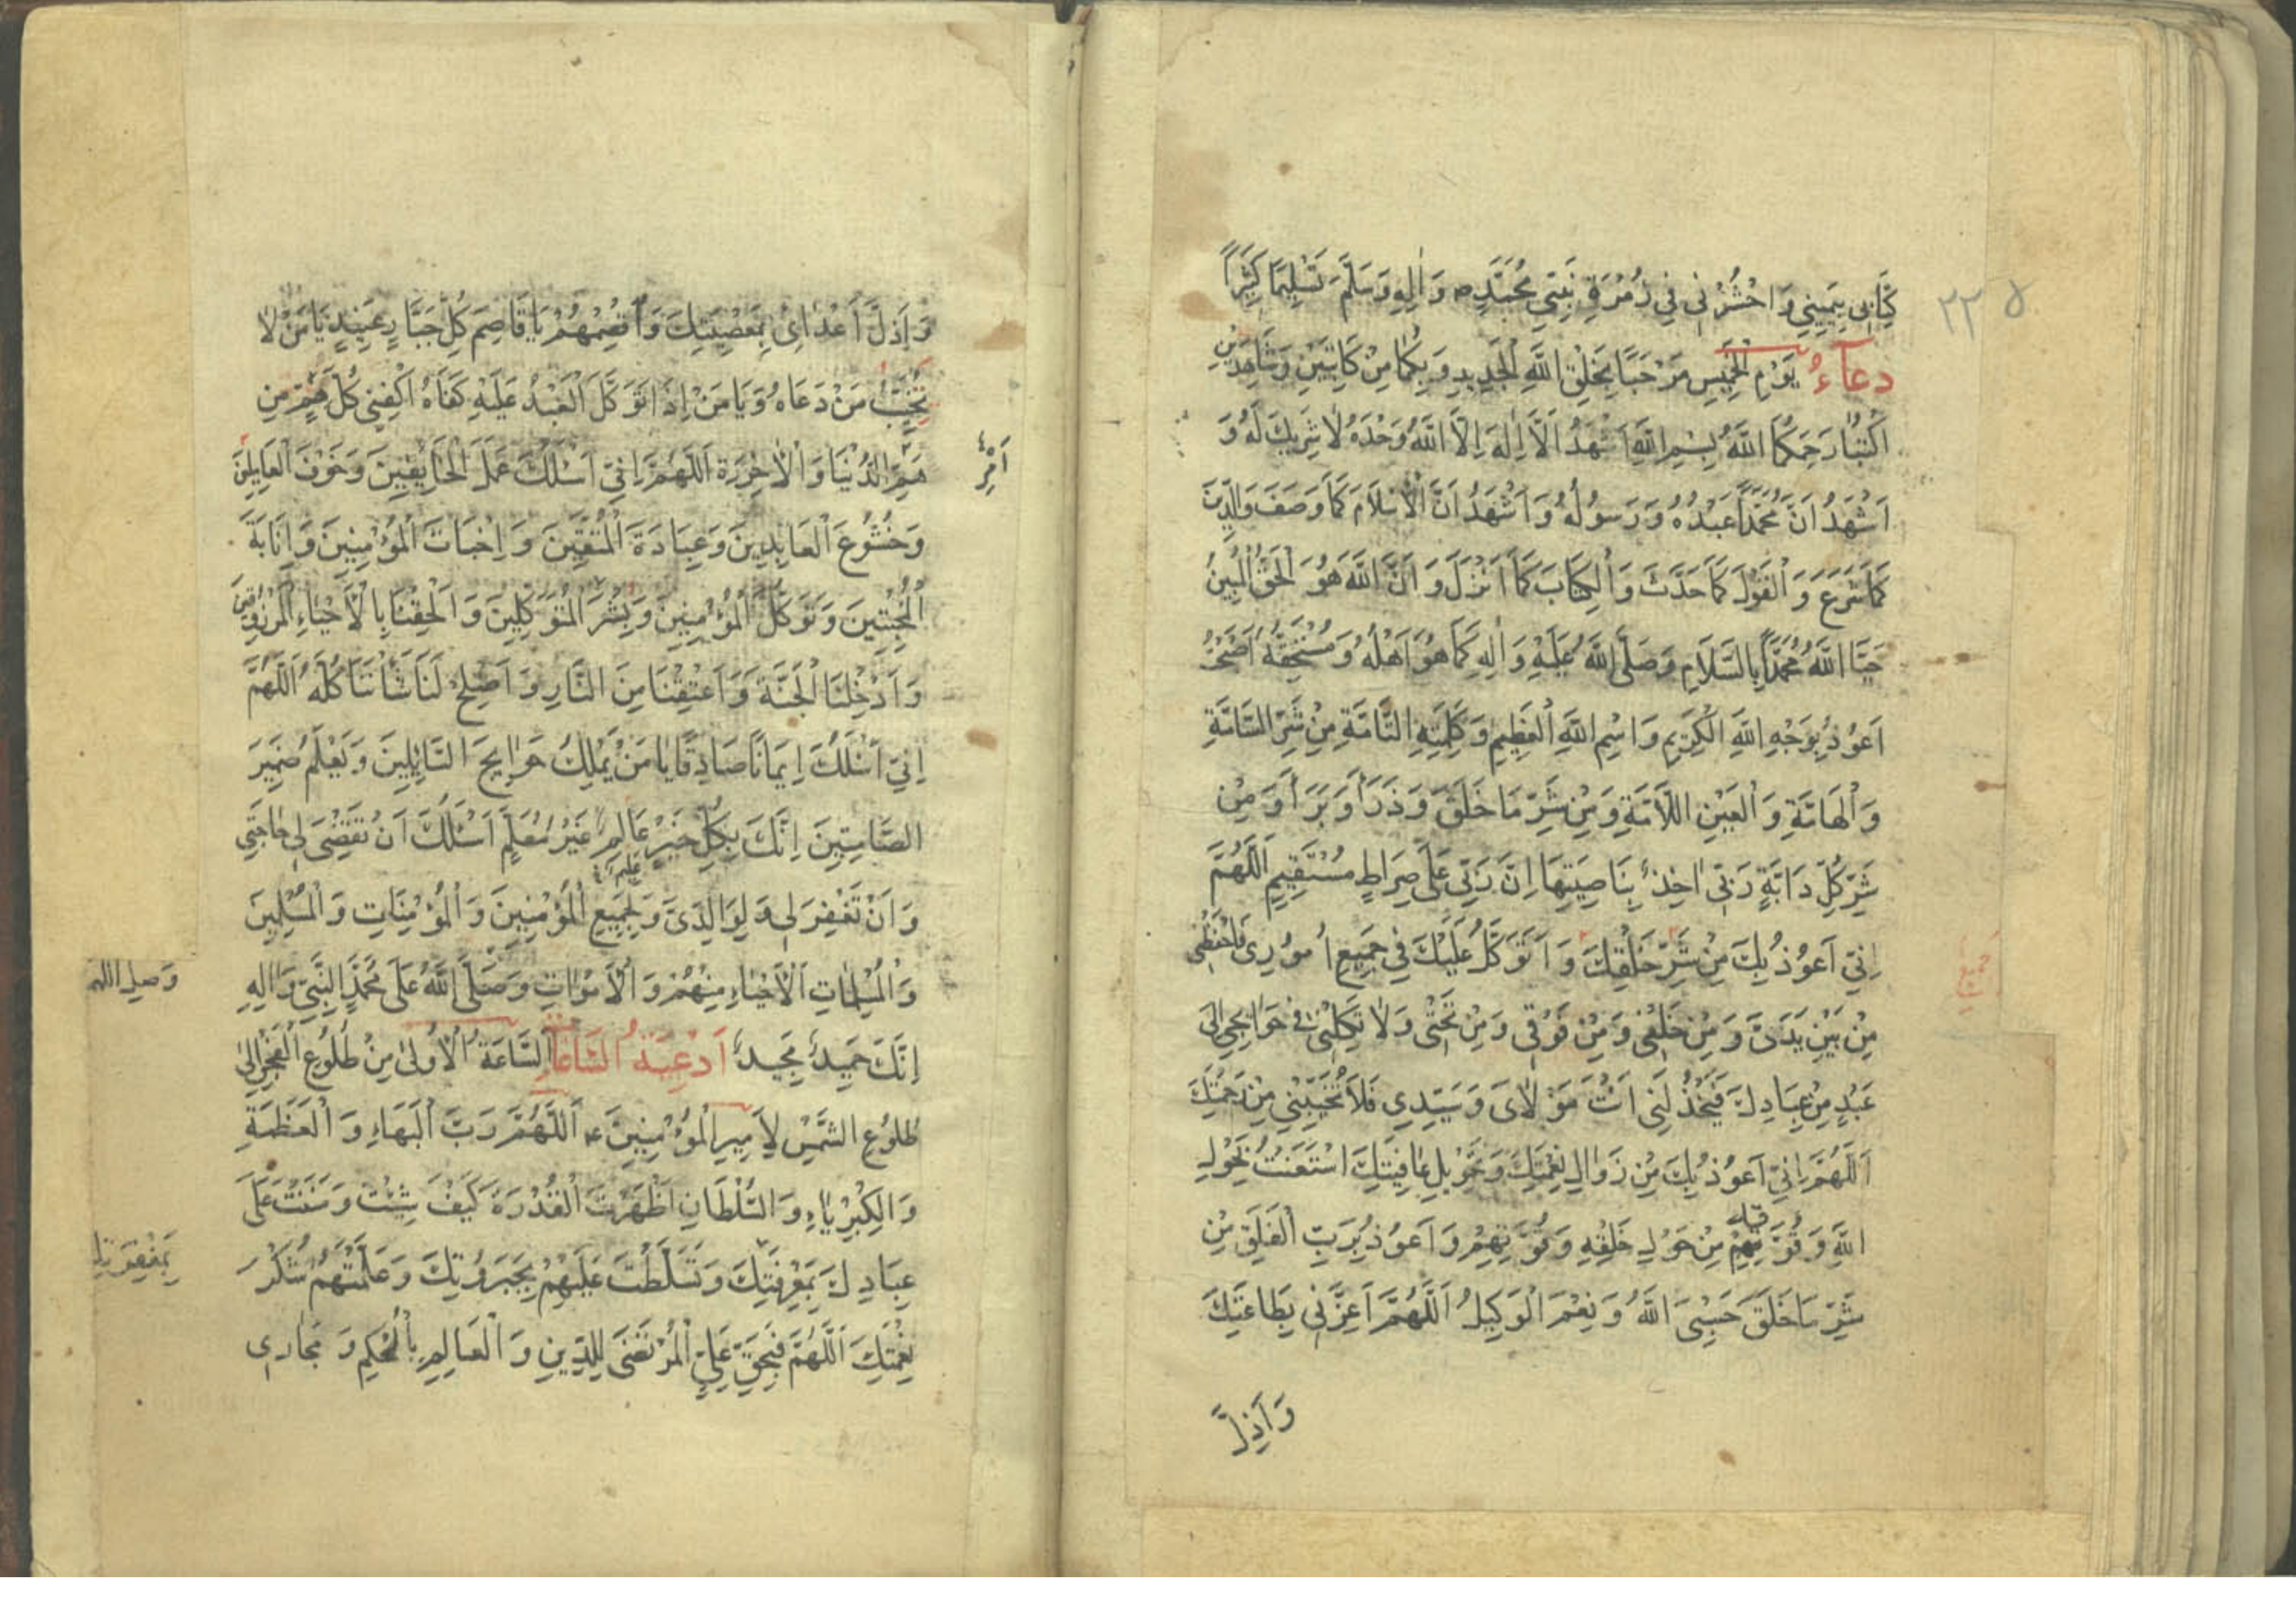 ٢٢٥
كِتَابِى بِيَمِينِى وَاحْشُرْنِى فِي زُمْرَةِ نَبِيِّي مُحَمَّدٍ ص وَالِهِ وَسَلَّمَ تَسْلِيمًا كَثِيراً
دعآءُ يَوْمِ الْخَمِيسِ مَرْحَبًا بِخَلْقِ اللَّهِ الْجَدِيدِ وَبِكُمَا مِنْ كَاتِبَيْنِ وَشَاهِدَيْنِ
اكْتُبَا رَحِمَكُمَا اللَّهُ بِسْمِ اللَّهِ اَشْهَدُ اَلَّا اِلٰهَ اِلَّا اللَّهُ وَحْدَهُ لَا شَرِيكَ لَهُ وَ
اَشْهَدُ اَنَّ مُحَمَّداً عَبْدُهُ وَرَسُولُهُ وَاَشْهَدُ اَنَّ الْاِسْلَامَ كَمَا وَصَفَ وَالدِّينَ
كَمَا شَرَعَ وَالْقَوْلَ كَمَا حَدَّثَ وَالْكِتَابَ كَمَا اَنْزَلَ وَاَنَّ اللَّهَ هُوَ الْحَقُّ الْمُبِينُ
حَيَّا اللَّهُ مُحَمَّداً بِالسَّلَامِ وَصَلَّى اللَّهُ عَلَيْهِ وَالِهِ كَمَا هُوَ اَهْلُهُ وَمُسْتَحِقُّهُ اَصْبَحْتُ
اَعُوذُ بِوَجْهِ اللَّهِ الْكَرِيمِ وَاسْمِ اللَّهِ الْعَظِيمِ وَكَلِمَتِهِ التَّامَّةِ مِنْ شَرِّ السَّامَّةِ
وَالْهَامَّةِ وَالْعَيْنِ اللَّامَّةِ وَمِنْ شَرِّ مَا خَلَقَ وَذَرَاَ وَبَرَاَ وَمِنْ
شَرِّ كُلِّ دَابَّةٍ رَبِّي اٰخِذٌ بِنَاصِيَتِهَا اِنَّ رَبِّي عَلَى صِرَاطٍ مُسْتَقِيمٍ اَللَّهُمَّ
اِنِّي اَعُوذُ بِكَ مِنْ شَرِّ خَلْقِكَ وَاَتَوَكَّلُ عَلَيْكَ فِي جَمِيعِ اُمُورِى فَاحْفَظْنِى
جميع
مِنْ بَيْنِ يَدَىَّ وَمِنْ خَلْفِى وَمِنْ فَوْقِى وَمِنْ تَحْتِى وَلَا تَكِلْنِى فِى حَوَائِجِى اِلَى
عَبْدٍ مِنْ عِبَادِكَ فَيَخْذُلَنِى اَنْتَ مَوْلَاىَ وَسَيِّدِى فَلَا تُخَيِّبْنِي مِنْ رَحْمَتِكَ
اَللَّهُمَّ اِنِّي اَعُوذُ بِكَ مِنْ زَوَالِ نِعْمَتِكَ وَتَحْوِيلِ عَافِيَتِكَ اسْتَعَنْتُ بِحَوْلِ
اللَّهِ وَقُوَّتِهِ مِنْ حَوْلِ خَلْقِهِ وَقُوَّتِهِمْ وَاَعُوذُ بِرَبِّ الْفَلَقِ مِنْ
شَرِّ مَا خَلَقَ حَسْبِىَ اللَّهُ وَنِعْمَ الْوَكِيلُ اَللَّهُمَّ اَعِزَّنِى بِطَاعَتِكَ
وَاَذِلَّ
وَاَذِلَّ اَعْدَائِى بِمَعْصِيَتِكَ وَاَقْصِمْهُمْ يَا قَاصِمَ كُلِّ جَبَّارٍ عَنِيدٍ يَا مَنْ لَا
يُخَيِّبُ مَنْ دَعَاهُ وَيَا مَنْ اِذَا تَوَكَّلَ الْعَبْدُ عَلَيْهِ كَفَاهُ اكْفِنِى كُلَّ مُهِمٍّ مِنْ
هَمِّ الدُّنْيَا وَالْاٰخِرَةِ اَللَّهُمَّ اِنِّي اَسْئَلُكَ عَمَلَ الْخَائِفِينَ وَخَوْفَ الْعَامِلِينَ
اَمْرِ
وَخُشُوعَ الْعَابِدِينَ وَعِبَادَةَ الْمُتَّقِينَ وَاِخْبَاتَ الْمُؤْمِنِينَ وَاِنَابَةَ
الْمُخْبِتِينَ وَتَوَكُّلَ الْمُؤْمِنِينَ وَبِشْرَ الْمُتَوَكِّلِينَ وَاَلْحِقْنَا بِالْاَحْيَاءِ الْمَرْزُوقِينَ
وَاَدْخِلْنَا الْجَنَّةَ وَاَعْتِقْنَا مِنَ النَّارِ وَاَصْلِحْ لَنَا شَاْنَنَا كُلَّهُ اَللَّهُمَّ
اِنِّي اَسْئَلُكَ اِيمَانًا صَادِقًا يَا مَنْ يَمْلِكُ حَوَائِجَ السَّائِلِينَ وَيَعْلَمُ ضَمِيرَ
الصَّامِتِينَ اِنَّكَ بِكُلِّ خَيْرٍ عَالِمٌ غَيْرُ مُعَلَّمٍ اَسْئَلُكَ اَنْ تَقْضِىَ لِى حَاجَتِى
وَاَنْ تَغْفِرَ لِى وَلِوَالِدَىَّ وَلِجَمِيعِ الْمُؤْمِنِينَ وَالْمُؤْمِنَاتِ وَالْمُسْلِمِينَ
وَالْمُسْلِمَاتِ الْاَحْيَاءِ مِنْهُمْ وَالْاَمْوَاتِ وَصَلَّى اللَّهُ عَلَى مُحَمَّدٍ النَّبِيِّ وَالِهِ
وَصَلِّ اللهم
اِنَّكَ حَمِيدٌ مَجِيدٌ اَدْعِيَةُ السَّاعَاتِ السَّاعَةُ الْاُولَى مِنْ طُلُوعِ الْفَجْرِ اِلَى
طُلُوعِ الشَّمْسِ لِاَمِيرِ الْمُؤْمِنِينَ ع اَللَّهُمَّ رَبَّ الْبَهَاءِ وَالْعَظَمَةِ
وَالْكِبْرِيَاءِ وَالسُّلْطَانِ اَظْهَرْتَ الْقُدْرَةَ كَيْفَ شِئْتَ وَمَنَنْتَ عَلَى
عِبَادِكَ بِمَعْرِفَتِكَ وَتَسَلَّطْتَ عَلَيْهِمْ بِجَبَرُوتِكَ وَعَلَّمْتَهُمْ شُكْرَ
نِعْمَتِكَ اَللَّهُمَّ فَبِحَقِّ عَلِيٍّ الْمُرْتَضَى لِلدِّينِ وَالْعَالِمِ بِالْحُكْمِ وَمَجَارِى